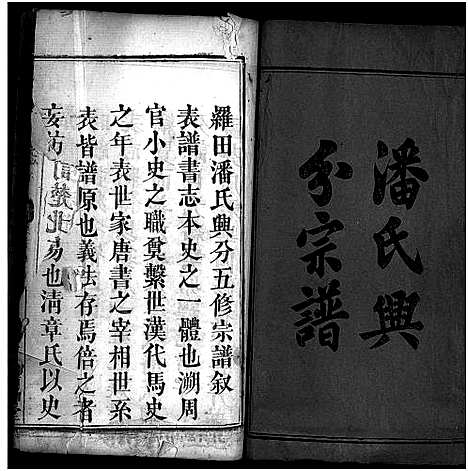 潘氏興
分宗譜
羅田潘氏興分五修宗譜叙
表譜書志本史之一體也溯周
官小史之職奠繫世漢代馬史
之年表世家唐書之宰相世系
表皆譜原也義法存焉倍之者
易也清章氏以史